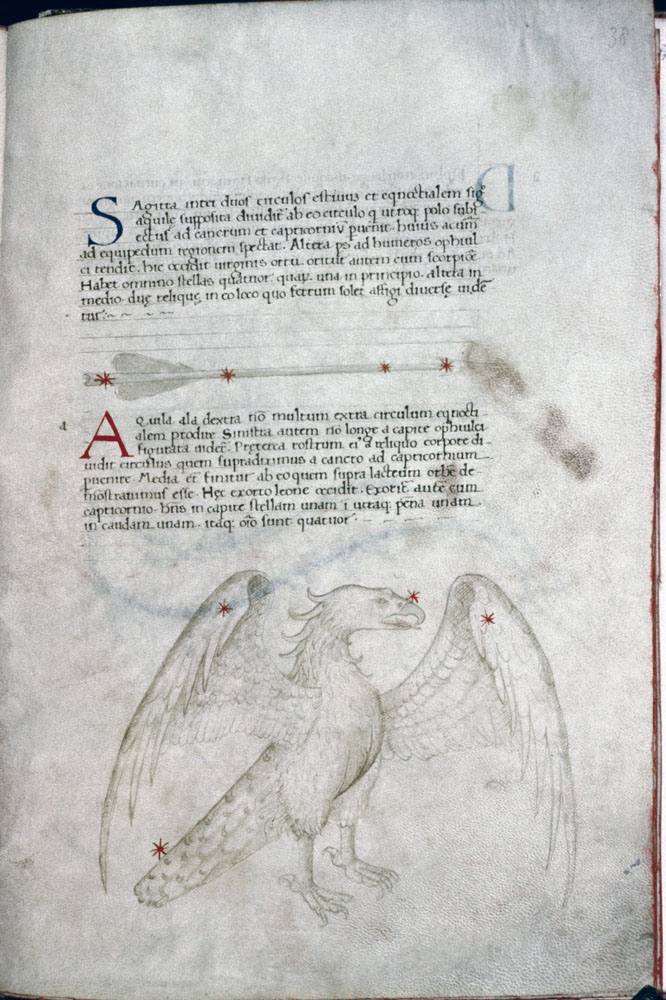 38
SAgitta inter duos circulos estiuus et eqnoctialem sig
aquile supposita diuidit ab eo circulo q utroq; polo subi-
ectus ad cancrum et capricornū puenit. huius acum
ad equipedum regionem spectat. Altera ps ad humeros ophiul
ci tendit. hic occidit uirginis ortu. oritur autem cum scorpiōe.
Habet omnino stellas quatuor quaȝ. una in principio. altera in
medio. due relique in eo loco quo ferrum solet affigi diuerse uidē
tur.
a
AQuila ala dextra nō multum extra circulum eqnocti
alem prodire. Sinistra autem nō longe a capite ophiulci
figurata uidet̄. Preterea rostrum ei9 a reliquo corpore di-
uidit circulus quem supradiximus a cancro ad capricornum
puenire. Media et finitur ab eo quem supra lacteum orbē de-
monstrauimus esse. Hec exorto leone occidit. Exorit̄ autē cum
capricornio. hn̄s in capite stellam unam i utraq; pēna unam.
in caudam unam. itaq; oīo sunt quatuor.